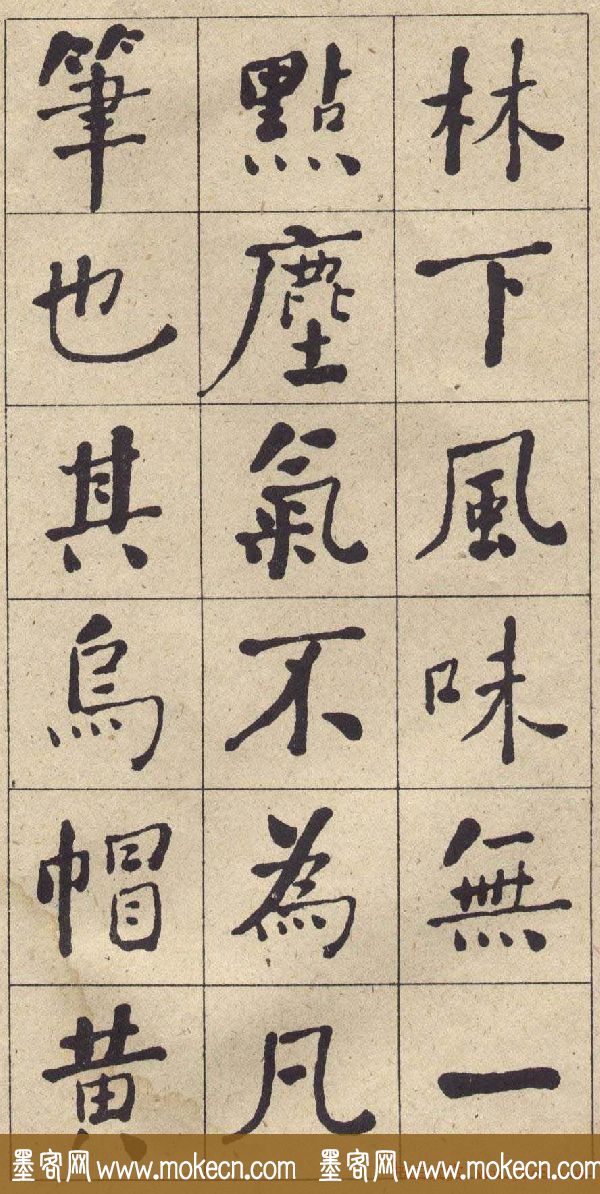 林下風味無一
點塵氣不為凡
筆也其烏帽黄
墨客网 www.mokecn.com 墨客网 www.mokecn.com